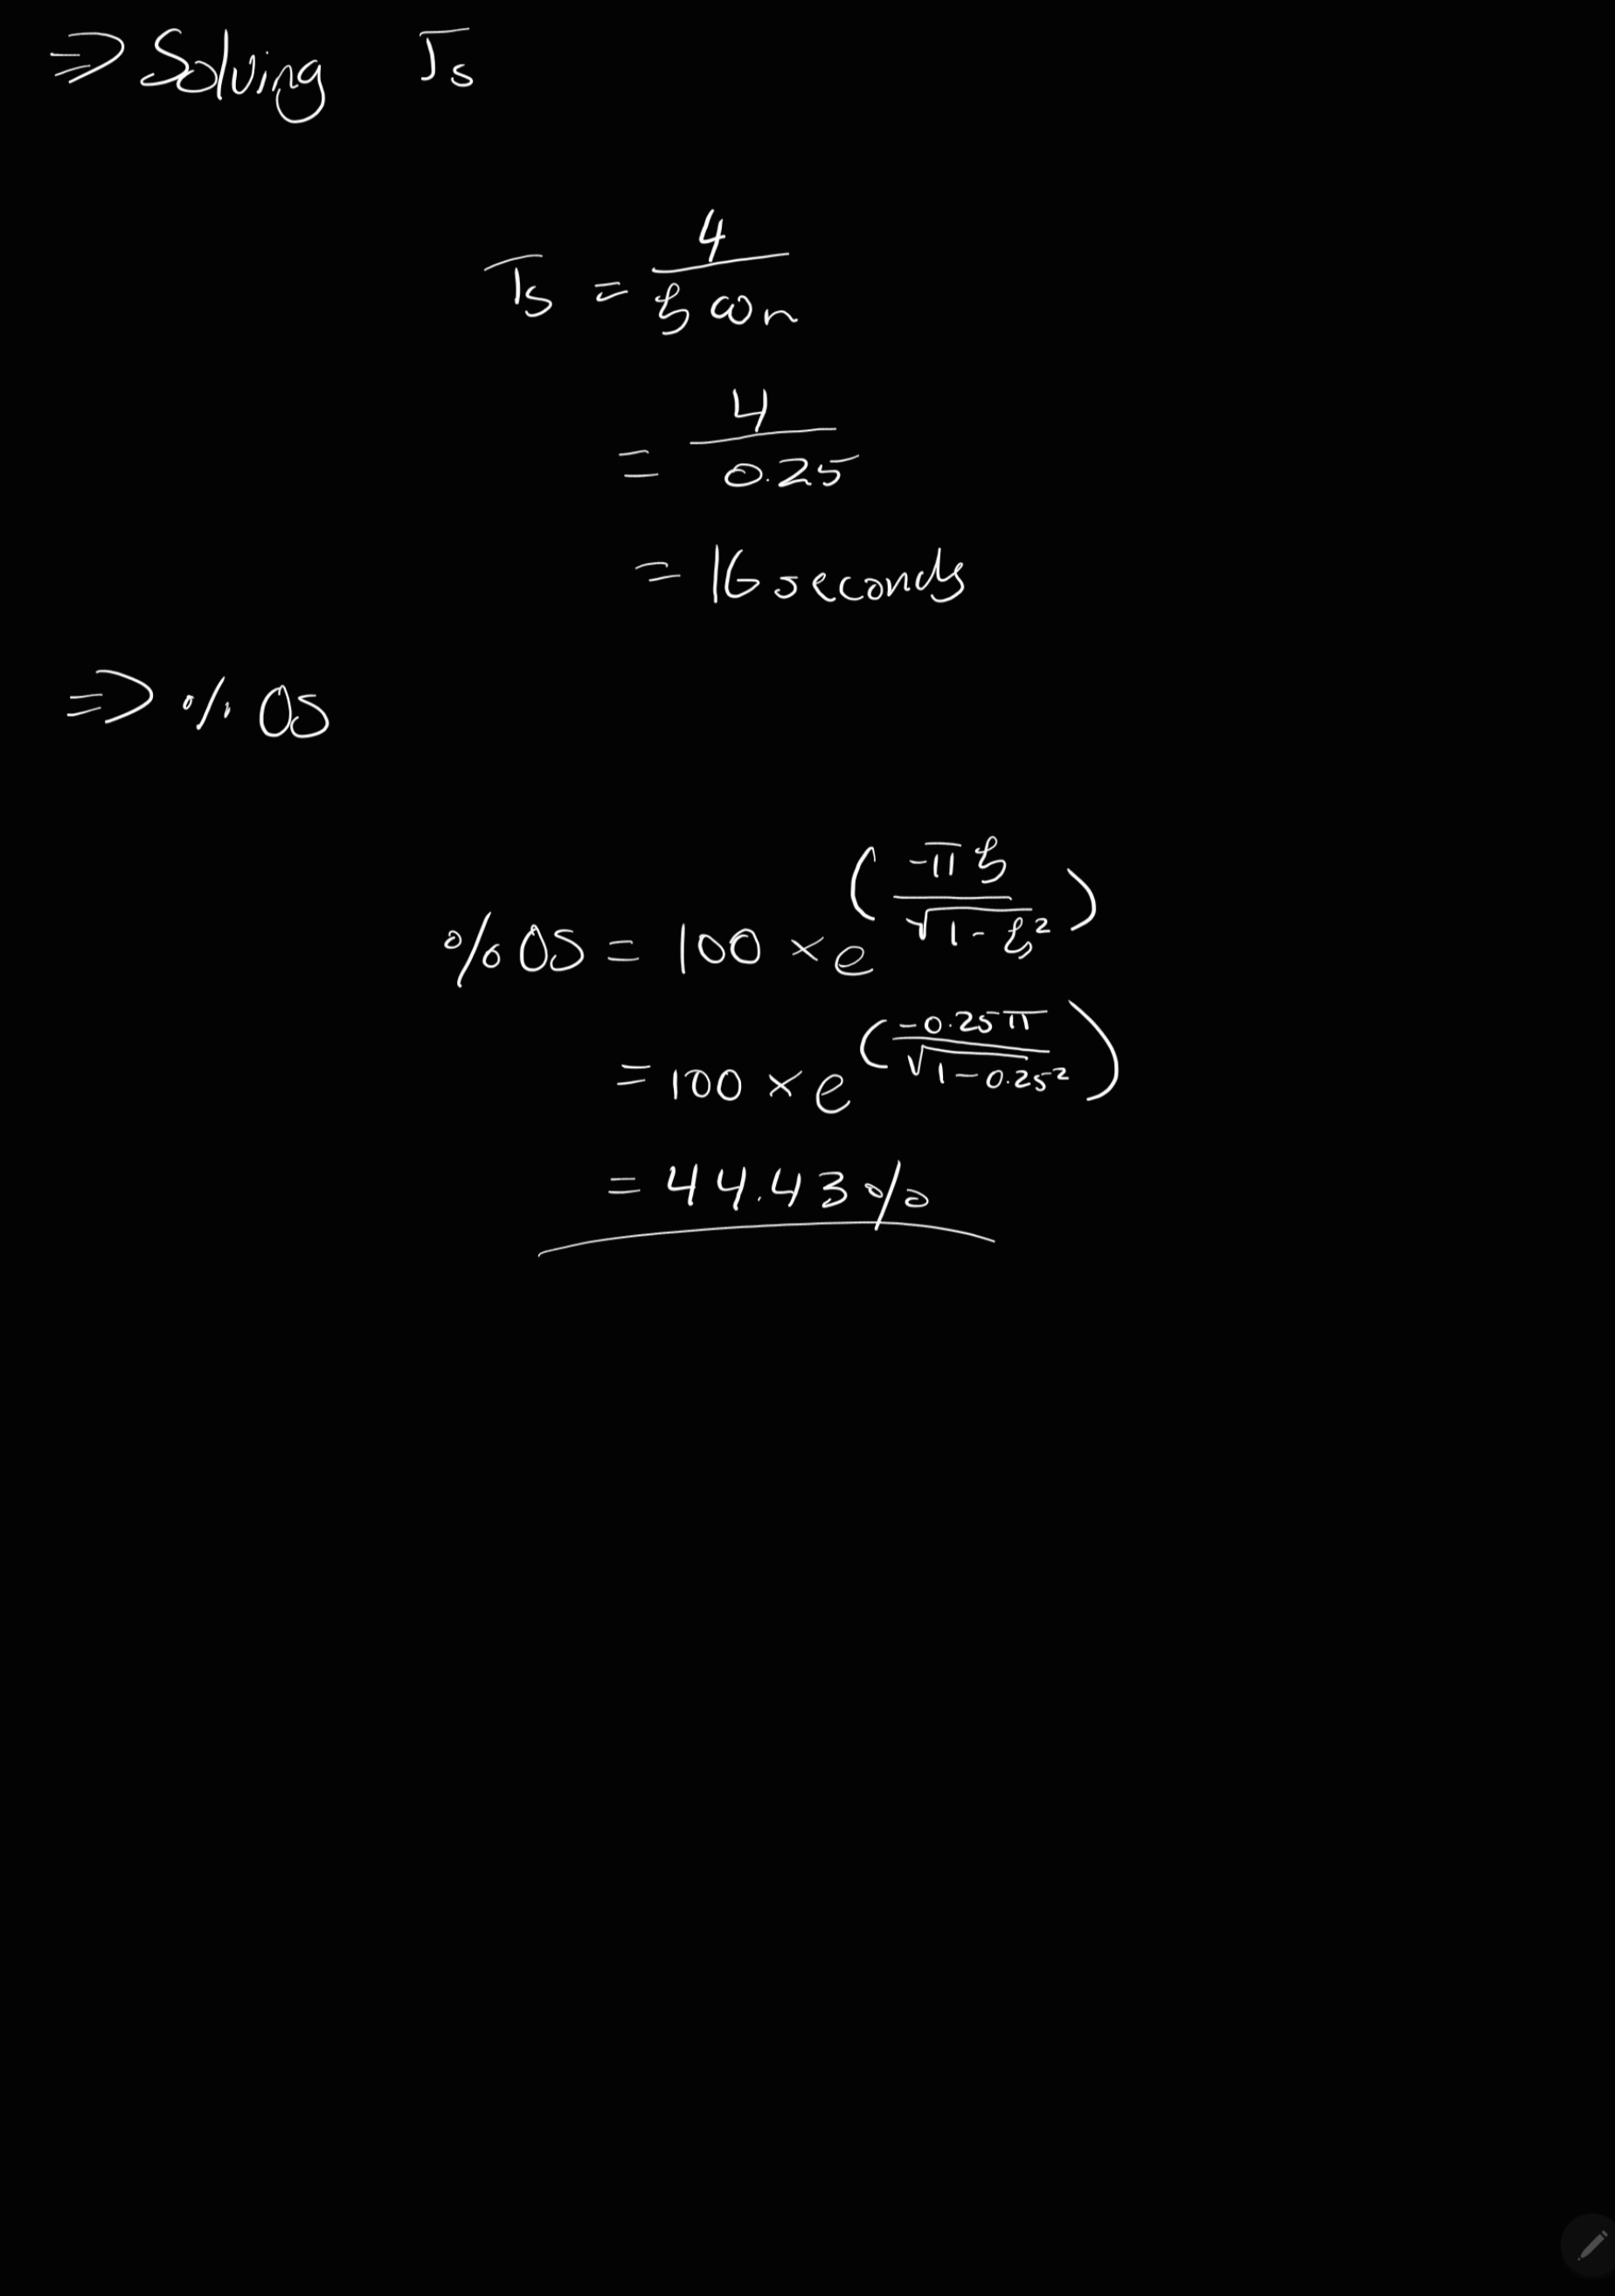 ⇒ Solving Ts
Ts = 4 / ξ ωn
= 4 / 0.25
= 16 seconds
⇒ % OS
% OS = 100 × e^(-π ξ / √(1 - ξ²))
= 100 × e^(-0.25 π / √(1 - 0.25²))
= 44.43 %